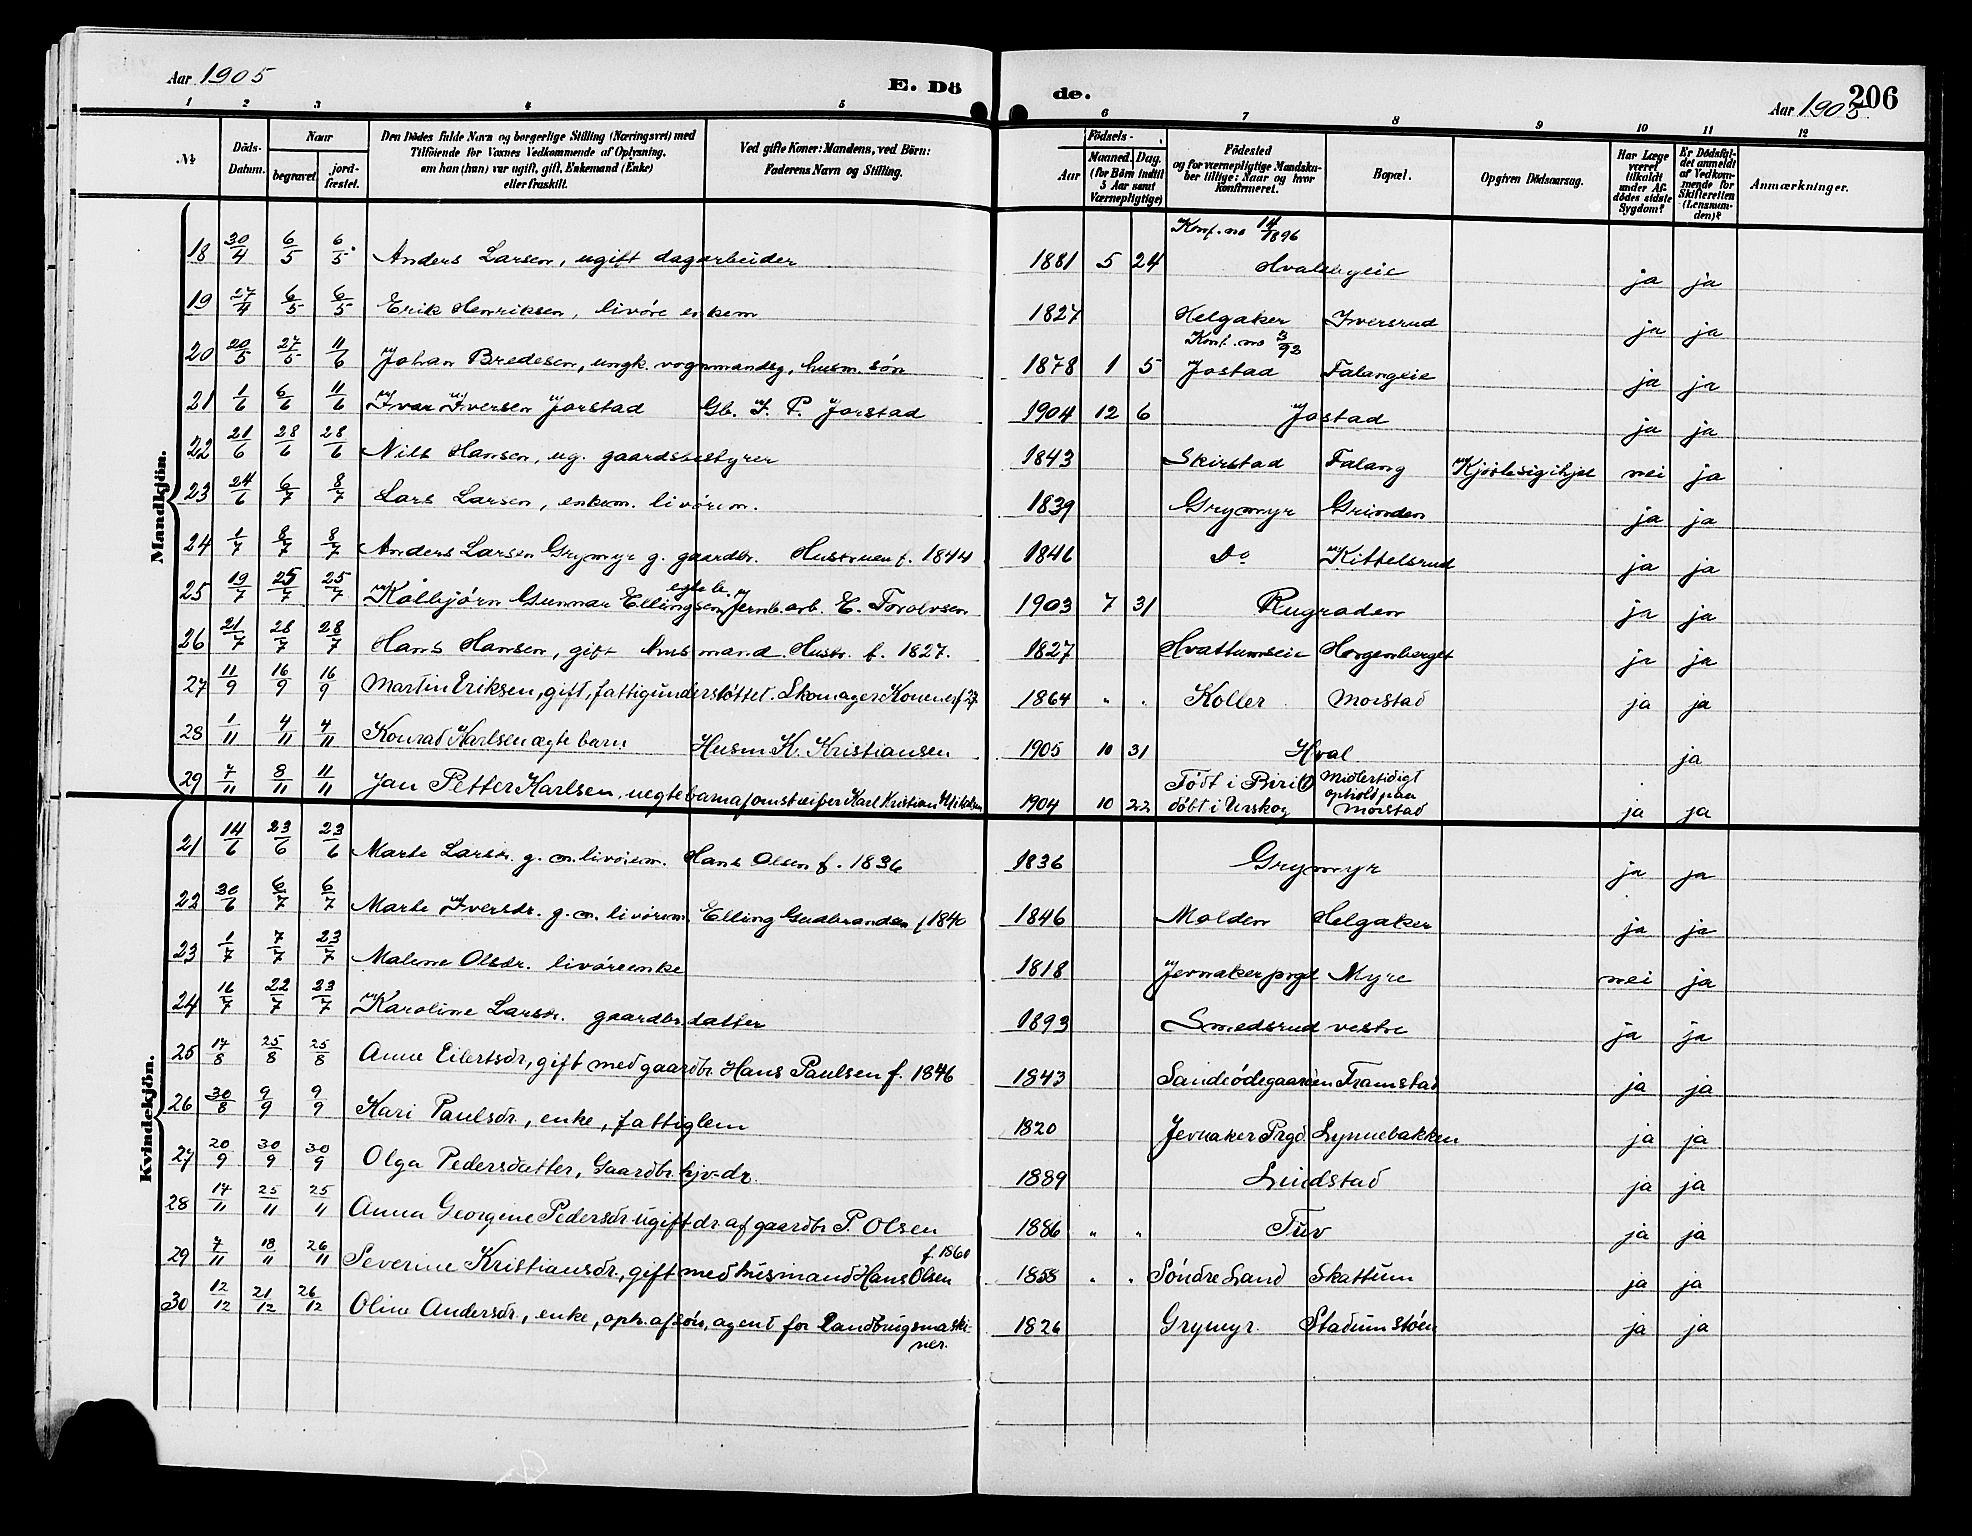 Aar 1905 E. Dö de. Aar 1905. 206
1 2 3 4 5 6 7 8 9 10 11 12
№ Döds-Datum. Naar begravet. jord-fæstet. Den Dödes fulde Navn og borgerlige Stilling (Næringsvei) med Tilföiende for Voxnes Vedkommende af Oplysning, om han (hun) var ugift, gift, Enkemand (Enke) eller fraskilt. Ved gifte Koner: Mandens, ved Börn: Faderens Navn og Stilling. Födsels- Aar Maaned. Dag. (for Börn indtil 5 Aar samt Værnepligtige) Födested og for værnepligtige Mandskaber tillige: Naar og hvor Konfirmeret. Bopæl. Opgiven Dödsaarsag. Har Læge været tilkaldt under Afdödes sidste Sygdom? Er Dödsfaldet anmeldt af Vedkommende for Skifteretten (Lensmanden)? Anmærkninger.
Mandkjön.
Konf. no 14/1896
18 30/4 6/5 6/5. Anders Larsen, ugift dagarbeider 1881 5 24 Hvalebyeie ja ja
19 27/4 6/5 6/5 Erik Henriksen, livöre enkem 1827 Helgaker Iversrud ja ja
Konf. no 3/93
20 20/5 27/5 11/6 Johan Bredesen, ungk. vognmandsg, husm. sön 1878 1 5 Jostad Falangeie ja ja
21 1/6 6/6 11/6 Ivar Iversen Jorstad Gb. I. P. Jorstad 1904 12 6 Jostad ja ja
22 21/6 28/6 28/6 Nils Hansen, ug. gaardsbestyrer 1843 Skirstad Falang Kjörte sig ihjel nei ja
23 24/6 6/7 8/7 Lars Larsen, enkem. livörem. 1839 Grymyr Grinden ja ja
24 1/7 8/7 8/7 Anders Larsen Grymyr g. gaardbr. Hustruen f. 1844 1846 Do Kittelsrud ja ja
25 19/7 25/7 25/7 Kolbjörn Gunnar Ellingsen egte b. Jernb. arb. E. Torolvsen 1903 7 31 Rugraden ja ja
26 21/7 28/7 28/7 Hans Hansen, gift husmand. Hustr. f. 1827. 1827 Hvattumseie Horgenberget ja ja
27 11/9 16/9 16/9 Martin Eriksen, gift, fattigunderstöttet. Skomager Konen f. 27 1864 " " Koller Morstad ja ja
28 1/11 4/11 4/11 Konrad Karlsen ægte barn Husm K. Kristiansen 1905 10 31 Hval ja
29 7/11 8/11 11/11 Jan Petter Karlsen, uegte barn af omstreifer Karl Kristian 1904 10 22 Födt i Biri döbt i Urskog Midlertidigt ophold paa Morstad ja ja
Kvindekjön.
21 14/6 23/6 23/6 Marte Larsdr. g. m. livörem. Hans Olsen f. 1836 1836 Grymyr ja ja
22 30/6 6/7 6/7 Marte Iversdr. g. m. livörem. Elling Gudbrandsen f 1840 1846 Molden Helgaker ja ja
23 1/7 7/7 23/7 Malene Olsdr. livöreenke 1818 Jevnaker prgd Myre nei ja
24 16/7 22/7 23/7 Karoline Larsdr. gaardbr. datter 1893 Smedsrud vestre ja ja
25 17/8 25/8 25/8 Anne Eilertsdr, gift med gaardbr. Hans Paulsen f. 1846 1843 Sandeödegaarden Framstad ja ja
26 30/8 9/9 9/9 Kari Paulsdr, enke, fattiglem 1820 Jevnaker Prgd. Lynnebakken ja ja
27 20/9 30/9 30/9 Olga Pedersdatter, Gaardbr. hjv-dr. 1889 Lindstad ja ja
28 17/11 25/11 25/11 Anna Georgine Pedersdr ugift dr af gaardbr P. Olsen 1886 " " Tuv ja ja
29 7/11 18/11 26/11 Severine Kristiansdr., gift med husmand Hans Olsen f. 1860 1858 " " Söndre Land Skattum ja ja
30 12/12 21/12 26/12 Oline Andersdr, enke, oph. af sön, agent for Landbrugsmaski- 1826 Grymyr. Stadumstöen ja ja
ner.